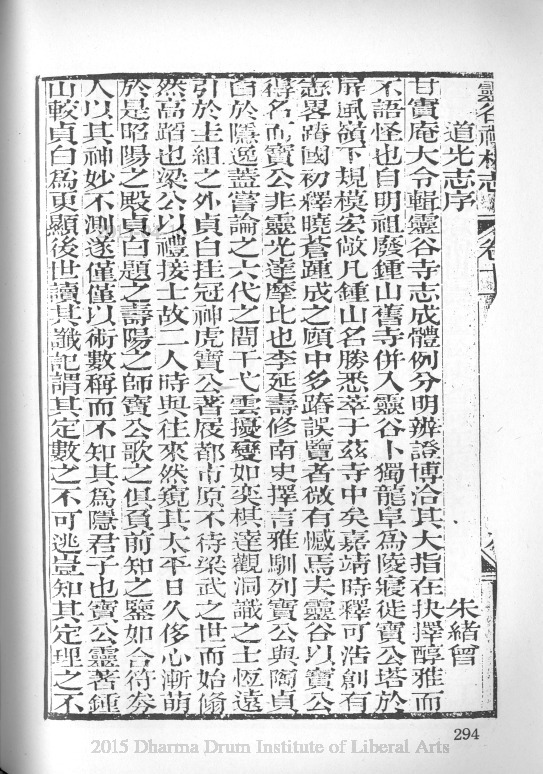 靈谷禪林志 卷十
道光志序 朱緒曾
甘實庵大令輯靈谷寺志成體例分明辨證博洽其大指在抉擇醇雅而
不語怪也自明祖廢鍾山舊寺併入靈谷卜獨龍阜為陵寢徙寶公塔於
屏風嶺下規模宏敞凡鍾山名勝悉萃于茲寺中矣嘉靖時釋可浩創有
志畧踳國初釋曉蒼踵成之顧中多踳誤覽者微有憾焉夫靈谷以寶公
得名而寶公非靈光達摩比也李延壽修南史擇言雅馴列寶公與陶貞
白於隱逸蓋嘗論之六代之間干戈雲擾變如奕棋達觀洞識之士恆遠
引於圭組之外貞白挂冠神虎寶公著屐都市原不待梁武之世而始翛
然高蹈也梁公以禮接士故二人時與往來然窺其太平日久侈心漸萌
於是昭陽之殿貞白題之壽陽之師寶公歌之俱負前知之鑒如合符劵
人以其神妙不測遂僅僅以術數稱而不知其為隱君子也寶公靈著鍾
山較貞白為更顯後世讀其讖記謂其定數之不可逃豈知其定理之不
294
2015 Dharma Drum Institute of Liberal Arts